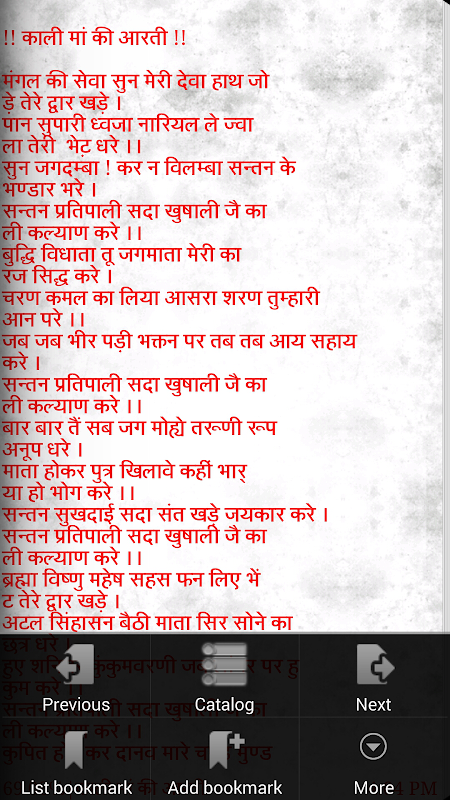 !! काली मां की आरती !!
मंगल की सेवा सुन मेरी देवा हाथ जो
ड़े तेरे द्वार खड़े ।
पान सुपारी ध्वजा नारियल ले ज्वा
ला तेरी भेट़ धरे ।।
सुन जगदम्बा ! कर न विलम्बा सन्तन के
भण्डार भरे ।
सन्तन प्रतिपाली सदा खुषाली जै का
ली कल्याण करे ।।
बुद्धि विधाता तू जगमाता मेरी का
रज सिद्ध करे ।
चरण कमल का लिया आसरा शरण तुम्हारी
आन परे ।।
जब जब भीर पड़ी भक्तन पर तब तब आय सहाय
करे ।
सन्तन प्रतिपाली सदा खुषाली जै का
ली कल्याण करे ।।
बार बार तैं सब जग मोह्ये तरूणी रूप
अनूप धरे ।
माता होकर पुत्र खिलावे कहीं भार्
या हो भोग करे ।।
सन्तन सुखदाई सदा संत खड़े जयकार करे ।
सन्तन प्रतिपाली सदा खुषाली जै का
ली कल्याण करे ।।
ब्रह्मा विष्णु महेष सहस फन लिए भें
ट तेरे द्वार खड़े ।
अटल सिंहासन बैठी माता सिर सोने का
छत्र धरे ।
हुए कुंकुमवरणी पर हु
कुम करे ।
सन्तन प्रतिपाली सदा खुषाली जै का
ली कल्याण करे ।।
कुपित कर दानव मारे मुण्ड
Previous
Catalog
Next
List bookmark
Add bookmark
More
की PM